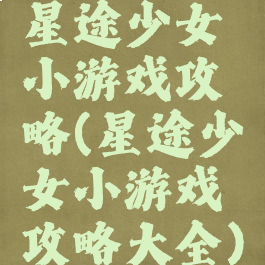 星途少女
小游戏攻
略(星途少
女小游戏
攻略大全)